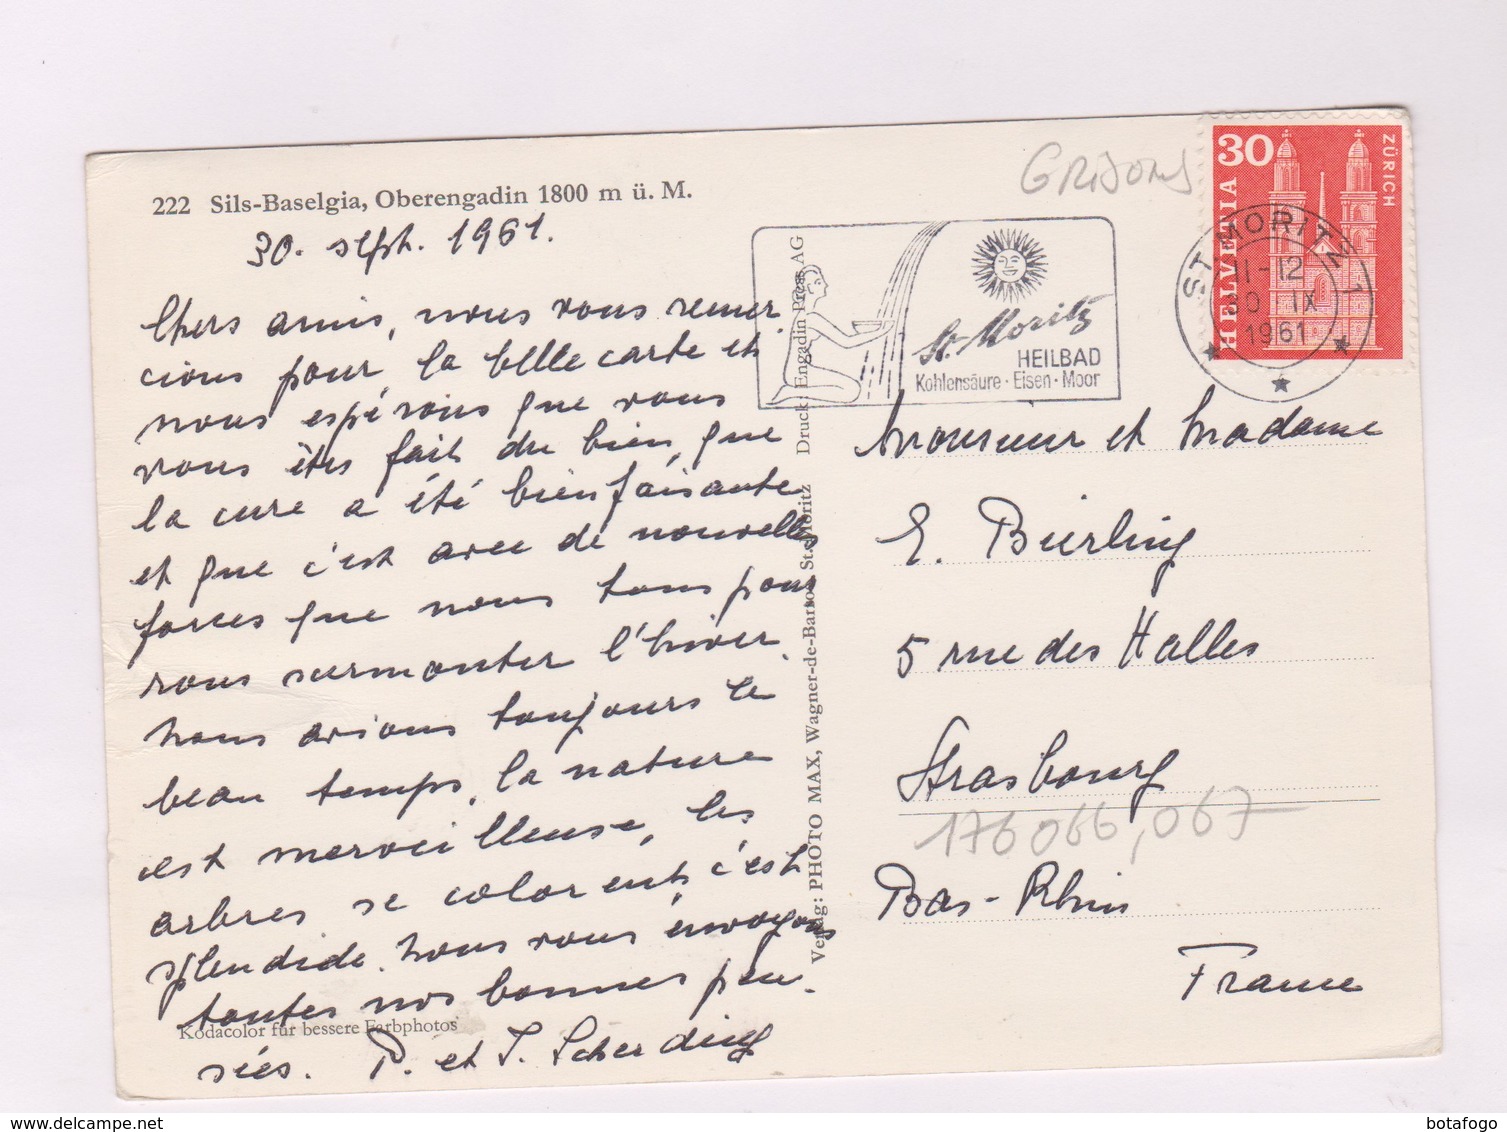 222 Sils-Baselgia, Oberengadin 1800 m ü. M.
30. sept. 1961.
Chers amis, nous vous remer
cions pour la belle carte et
nous espérons que vous
vous êtes fait du bien, que
la cure a été bienfaisante
et que c'est avec de nouvelles
forces que nous tous pour
rons surmonter l'hiver.
Nous avions toujours le
beau temps, la nature
est merveilleuse, les
arbres se colorent, c'est
splendide. Nous vous envoyons
toutes nos bonnes pen
sées. P. et T. Scherding
Kodacolor für bessere Farbphotos
Verlag: PHOTO MAX, Wagner-de-Barros St. Moritz Druck: Engadin Press AG
GRISONS
St. Moritz
HEILBAD
Kohlensäure · Eisen · Moor
30
HELVETIA
ZÜRICH
ST. MORITZ 1
11-12
30 IX
1961
Monsieur et Madame
E. Bierling
5 rue des Halles
Strasbourg
176066,067
Bas-Rhin
France
www.delcampe.net
botafogo